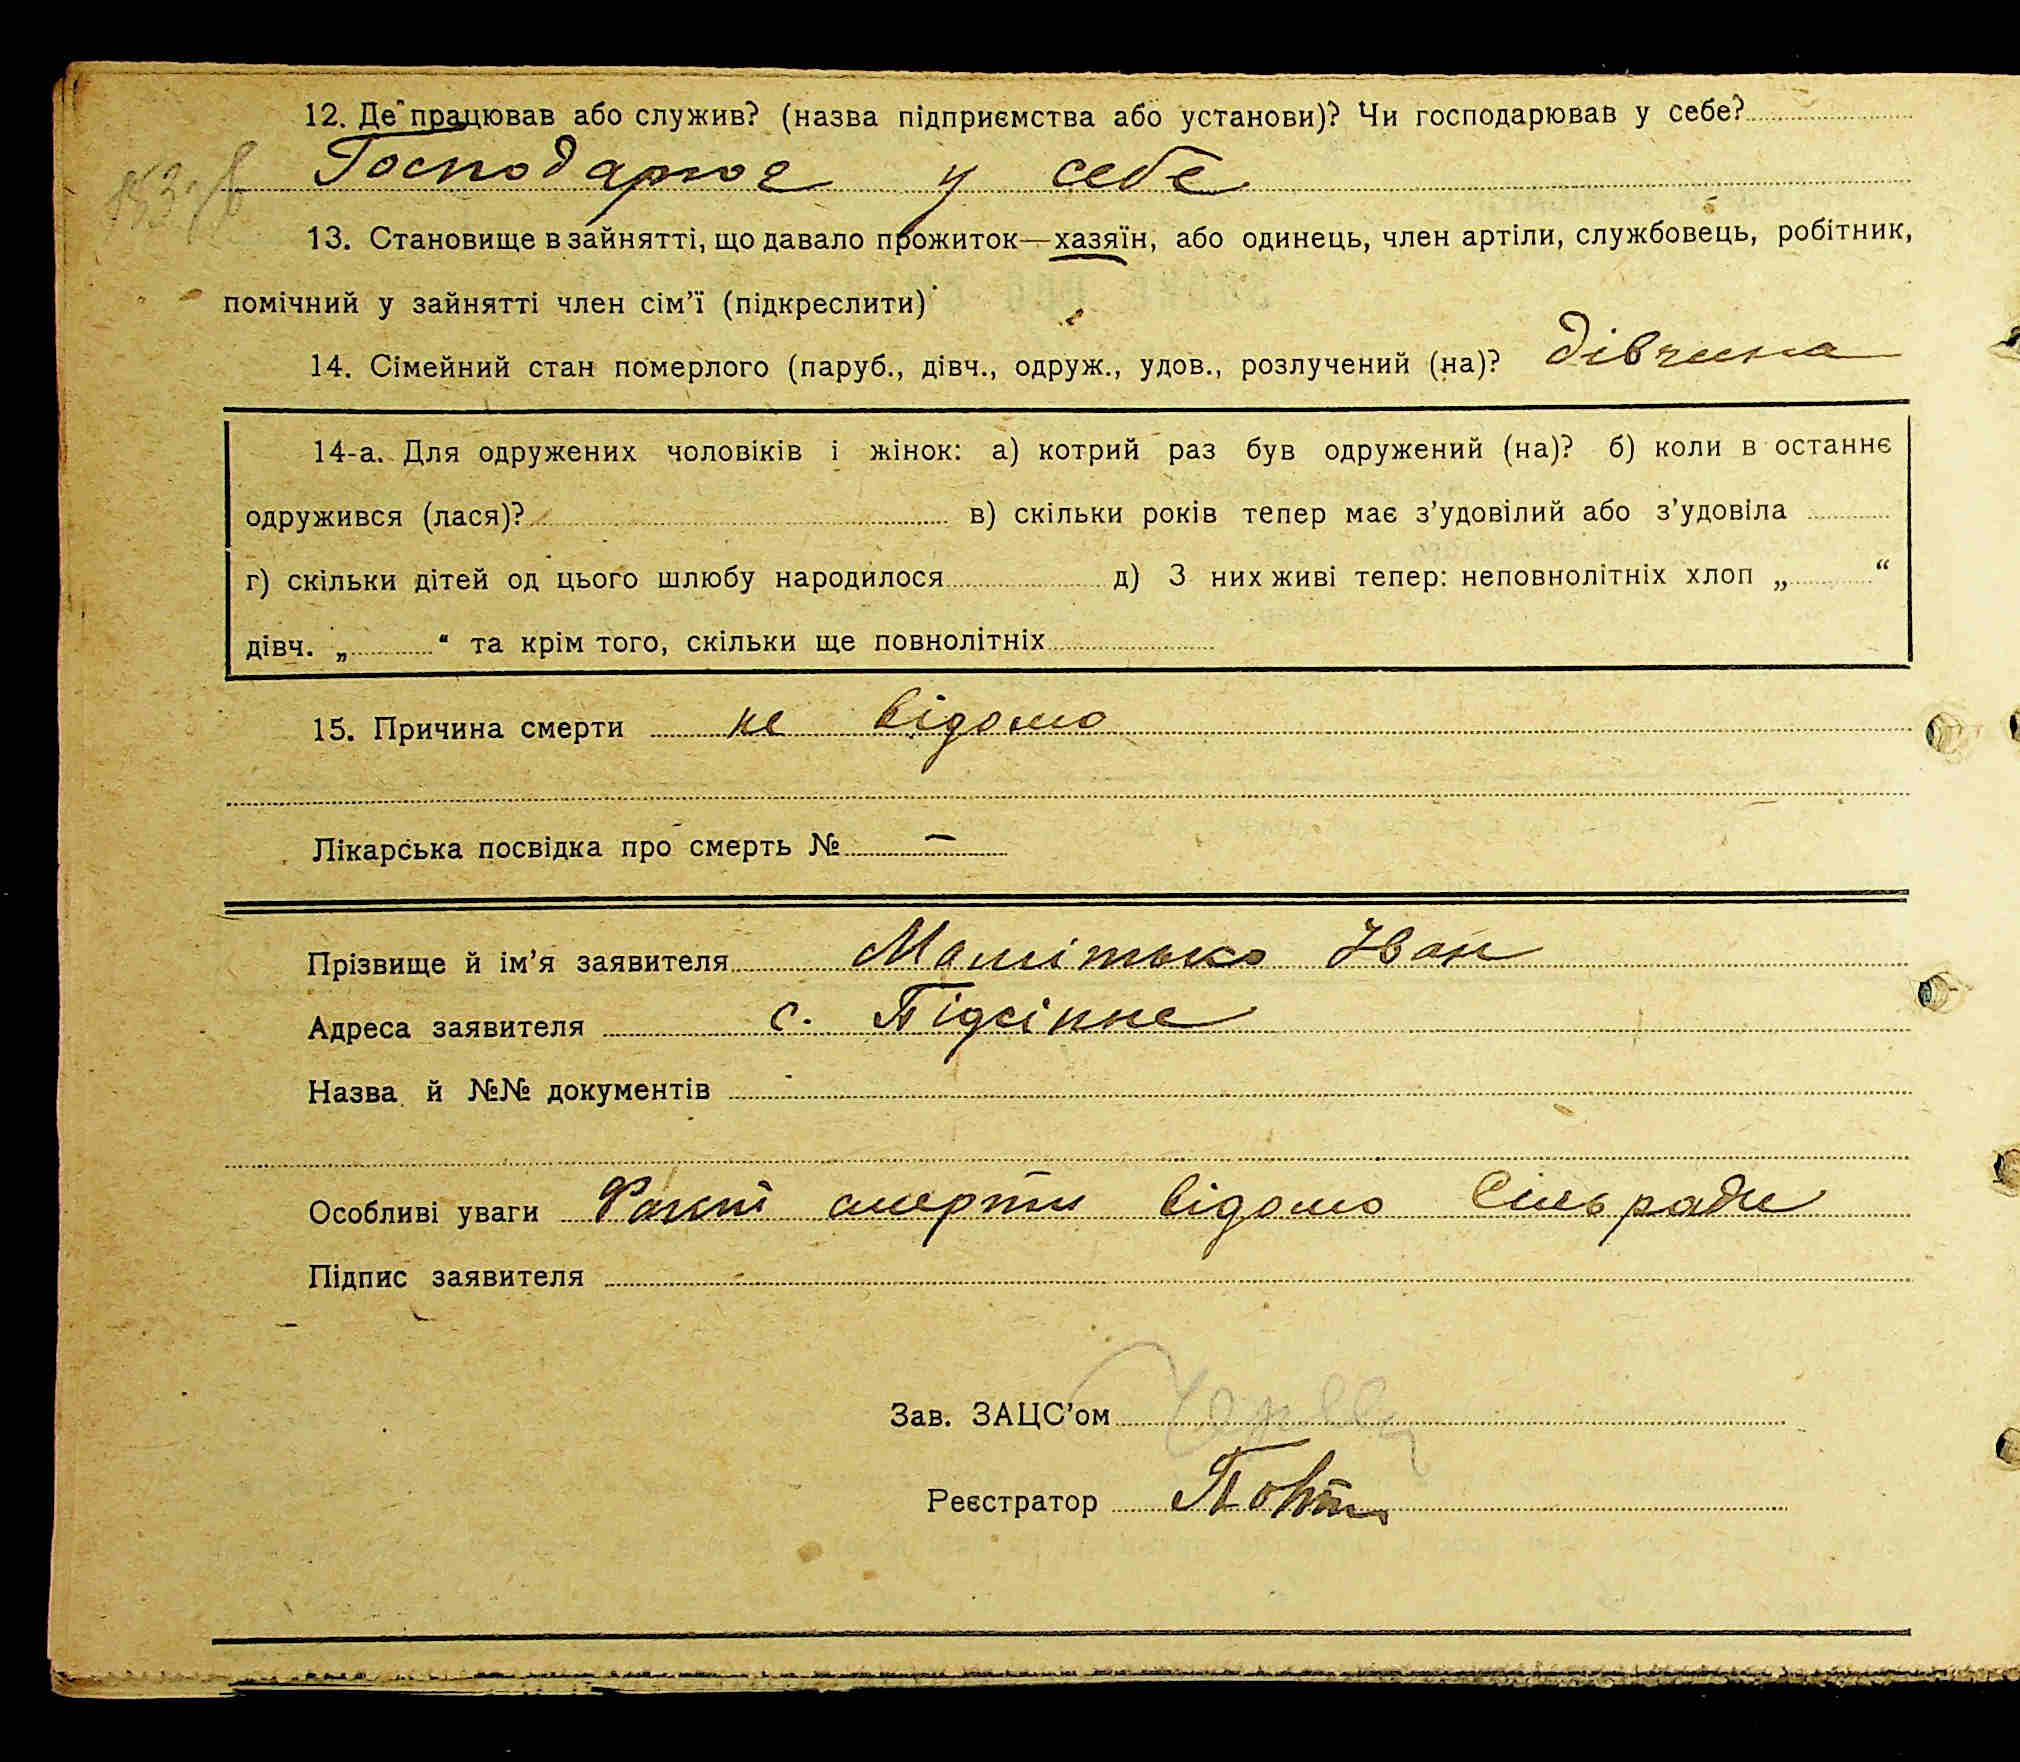 12. Де працював або служив? (назва підприємства або установи)? Чи господарював у себе?
Господарює у себе
13. Становище в зайнятті, що давало прожиток—хазяїн, або одинець, член артіли, службовець, робітник,
помічний у зайнятті член сім’ї (підкреслити)
14. Сімейний стан померлого (паруб., дівч., одруж., удов., розлучений (на)? дівчина
14-а. Для одружених чоловіків і жінок: а) котрий раз був одружений (на)? б) коли в останнє
одружився (лася)? в) скільки років тепер має з’удовілий або з’удовіла
г) скільки дітей од цього шлюбу народилося д) З них живі тепер: неповнолітніх хлоп „ “
дівч. „ “ та крім того, скільки ще повнолітніх
15. Причина смерти не відомо
Лікарська посвідка про смерть № —
Прізвище й ім’я заявителя Іван
Адреса заявителя с. Підсіпне
Назва й №№ документів
Особливі уваги Факт смерти відомо Сільради
Підпис заявителя
Зав. ЗАЦС’ом
Реєстратор